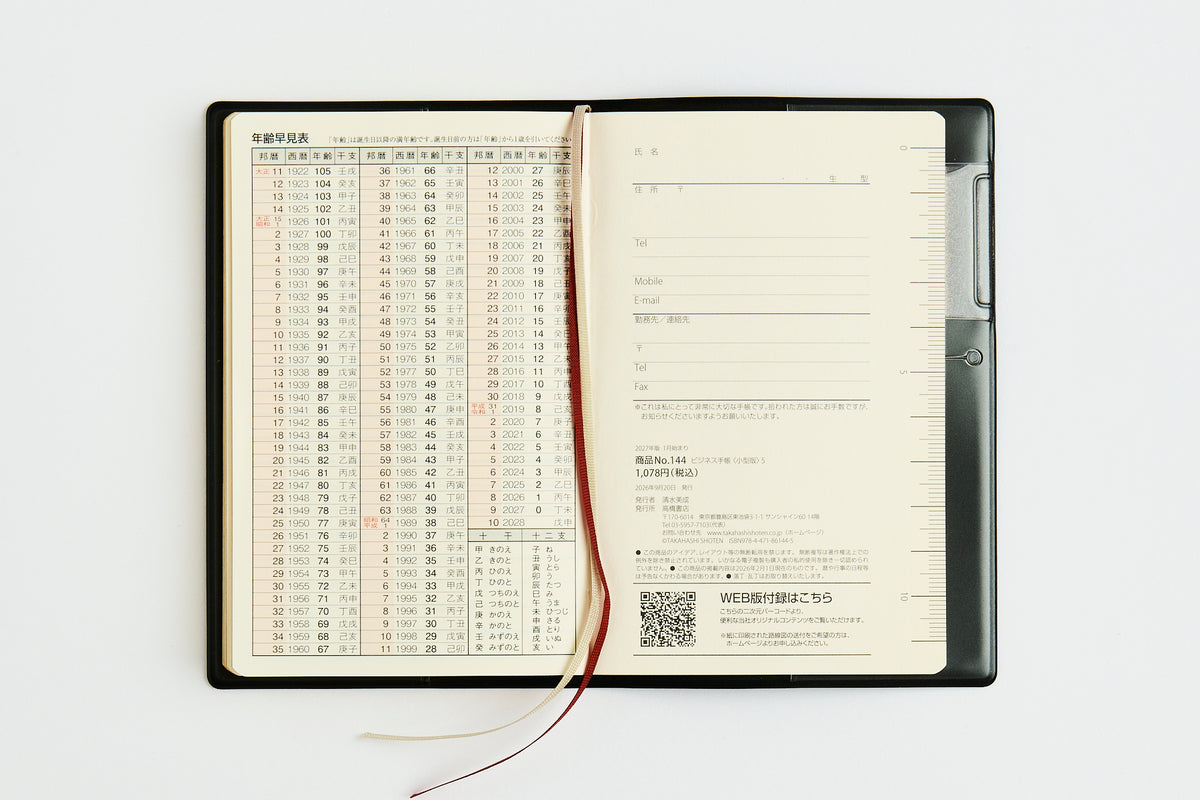 年齢早見表 「年齢」は誕生日以降の満年齢です。誕生日前の方は「年齢」から1歳を引いてください
邦暦 西暦 年齢 干支
大正 11 1922 105 壬戌
12 1923 104 癸亥
13 1924 103 甲子
14 1925 102 乙丑
大正 15 昭和 1 1926 101 丙寅
2 1927 100 丁卯
3 1928 99 戊辰
4 1929 98 己巳
5 1930 97 庚午
6 1931 96 辛未
7 1932 95 壬申
8 1933 94 癸酉
9 1934 93 甲戌
10 1935 92 乙亥
11 1936 91 丙子
12 1937 90 丁丑
13 1938 89 戊寅
14 1939 88 己卯
15 1940 87 庚辰
16 1941 86 辛巳
17 1942 85 壬午
18 1943 84 癸未
19 1944 83 甲申
20 1945 82 乙酉
21 1946 81 丙戌
22 1947 80 丁亥
23 1948 79 戊子
24 1949 78 己丑
25 1950 77 庚寅
26 1951 76 辛卯
27 1952 75 壬辰
28 1953 74 癸巳
29 1954 73 甲午
30 1955 72 乙未
31 1956 71 丙申
32 1957 70 丁酉
33 1958 69 戊戌
34 1959 68 己亥
35 1960 67 庚子
邦暦 西暦 年齢 干支
36 1961 66 辛丑
37 1962 65 壬寅
38 1963 64 癸卯
39 1964 63 甲辰
40 1965 62 乙巳
41 1966 61 丙午
42 1967 60 丁未
43 1968 59 戊申
44 1969 58 己酉
45 1970 57 庚戌
46 1971 56 辛亥
47 1972 55 壬子
48 1973 54 癸丑
49 1974 53 甲寅
50 1975 52 乙卯
51 1976 51 丙辰
52 1977 50 丁巳
53 1978 49 戊午
54 1979 48 己未
55 1980 47 庚申
56 1981 46 辛酉
57 1982 45 壬戌
58 1983 44 癸亥
59 1984 43 甲子
60 1985 42 乙丑
61 1986 41 丙寅
62 1987 40 丁卯
63 1988 39 戊辰
昭和 64 平成 1 1989 38 己巳
2 1990 37 庚午
3 1991 36 辛未
4 1992 35 壬申
5 1993 34 癸酉
6 1994 33 甲戌
7 1995 32 乙亥
8 1996 31 丙子
9 1997 30 丁丑
10 1998 29 戊寅
11 1999 28 己卯
邦暦 西暦 年齢 干支
12 2000 27 庚辰
13 2001 26 辛巳
14 2002 25 壬午
15 2003 24 癸未
16 2004 23 甲申
17 2005 22 乙酉
18 2006 21 丙戌
19 2007 20 丁亥
20 2008 19 戊子
21 2009 18 己丑
22 2010 17 庚寅
23 2011 16 辛卯
24 2012 15 壬辰
25 2013 14 癸巳
26 2014 13 甲午
27 2015 12 乙未
28 2016 11 丙申
29 2017 10 丁酉
30 2018 9 戊戌
平成 31 令和 1 2019 8 己亥
2 2020 7 庚子
3 2021 6 辛丑
4 2022 5 壬寅
5 2023 4 癸卯
6 2024 3 甲辰
7 2025 2 乙巳
8 2026 1 丙午
9 2027 0 丁未
10 2028 戊申
十干
甲 きのえ
乙 きのと
丙 ひのえ
丁 ひのと
戊 つちのえ
己 つちのと
庚 かのえ
辛 かのと
壬 みずのえ
癸 みずのと
十二支
子 ね
丑 うし
寅 とら
卯 う
辰 たつ
巳 み
午 うま
未 ひつじ
申 さる
酉 とり
戌 いぬ
亥 い
氏 名
・ ・ 生 型
住 所 〒
Tel
Mobile
E-mail
勤務先/連絡先
〒
Tel
Fax
※これは私にとって非常に大切な手帳です。拾われた方は誠にお手数ですが、
お知らせくださいますようお願いいたします。
2027年版 1月始まり
商品No.144 ビジネス手帳〈小型版〉5
1,078円(税込)
2026年9月20日 発行
発行者 清水美成
発行所 高橋書店
〒170-6014 東京都豊島区東池袋3-1-1 サンシャイン60 14階
Tel 03-5957-7103(代表)
お問い合わせ先 www.takahashishoten.co.jp(ホームページ)
©TAKAHASHI SHOTEN ISBN978-4-471-86144-5
● この商品のアイデア、レイアウト等の無断転用を禁じます。 無断複写は著作権法上での
例外を除き禁止されています。 いかなる電子複製も購入者の私的使用を除き一切認められ
ていません。● この商品の掲載内容は2026年2月1日現在のものです。 暦や行事の日程等
は予告なくかわる場合があります。● 落丁・乱丁はお取り替えいたします。
WEB版付録はこちら
こちらの二次元バーコードより、
便利な当社オリジナルコンテンツをご覧いただけます。
※紙に印刷された路線図の送付をご希望の方は、
ホームページよりお申し込みください。
0
5
10